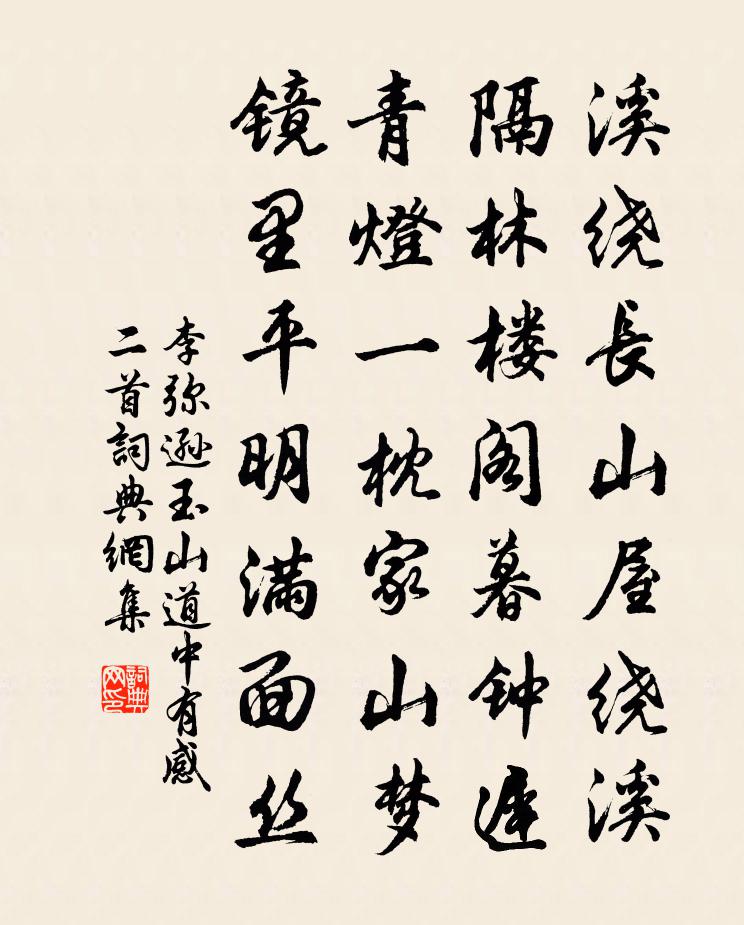 溪绕長山屋绕溪
隔林楼阁暮钟遲
青燈一枕家山梦
镜里平明满面丝
李弥遜玉山道中有感
二首詞典網集
詞典网印